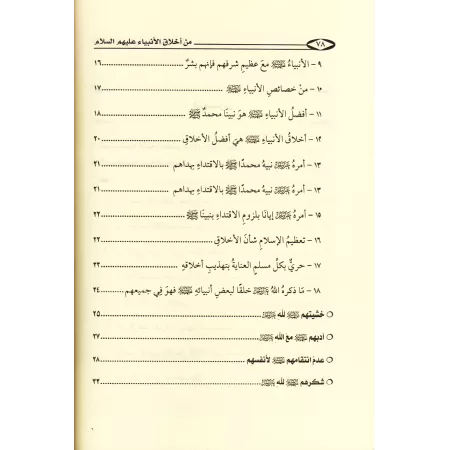 ٧٨ من أخلاق الأنبياء عليهم السلام
٩ - الأنبياءُ ﷺ معَ عظيمِ شرفِهم فإنهم بشرٌ ........ ١٦
١٠ - منْ خصائصِ الأنبياءِ ﷺ ........ ١٧
١١ - أفضلُ الأنبياءِ ﷺ هوَ نبينَا محمدٌ ﷺ ........ ١٨
١٢ - أخلاقُ الأنبياءِ ﷺ هيَ أفضلُ الأخلاقِ ........ ٢٠
١٣ - أمرهُ نبيهُ محمدًا ﷺ بالاقتداءِ بهداهم ........ ٢١
١٣ - أمرهُ نبيهُ محمدًا ﷺ بالاقتداءِ بهداهم ........ ٢١
١٥ - أمرهُ إيانَا بلزومِ الاقتداءِ بنبينَا ﷺ ........ ٢٢
١٦ - تعظيمُ الإسلامِ شأنَ الأخلاقِ ........ ٢٢
١٧ - حريٌّ بكلِّ مسلمٍ العنايةُ بتهذيبِ أخلاقهِ ........ ٢٣
١٨ - مَا ذكرهُ اللهُ خلقًا لبعضِ أنبيائهِ فهوَ فِي جميعهم ........ ٢٤
○ خشيتهم لله ........ ٢٥
○ أدبهم مع الله ........ ٢٧
○ عدم انتقامهم لأنفسهم ........ ٢٨
○ شكرهم لله ........ ٣٢